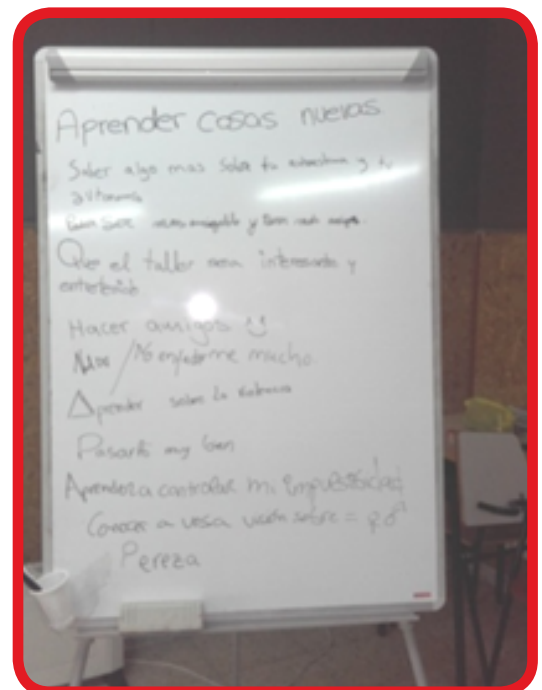 Aprender cosas nuevas
Saber algo mas sobre tu autoestima y tu
autonomia
y
Que el taller sea interesante y
entretenido
Hacer amigos
/ No enfadarme mucho.
Aprender sobre la violencia
Pasarlo muy bien
Aprender a controlar mi impulsividad
Conocer a vosa visión sobre = ♀♂
Pereza